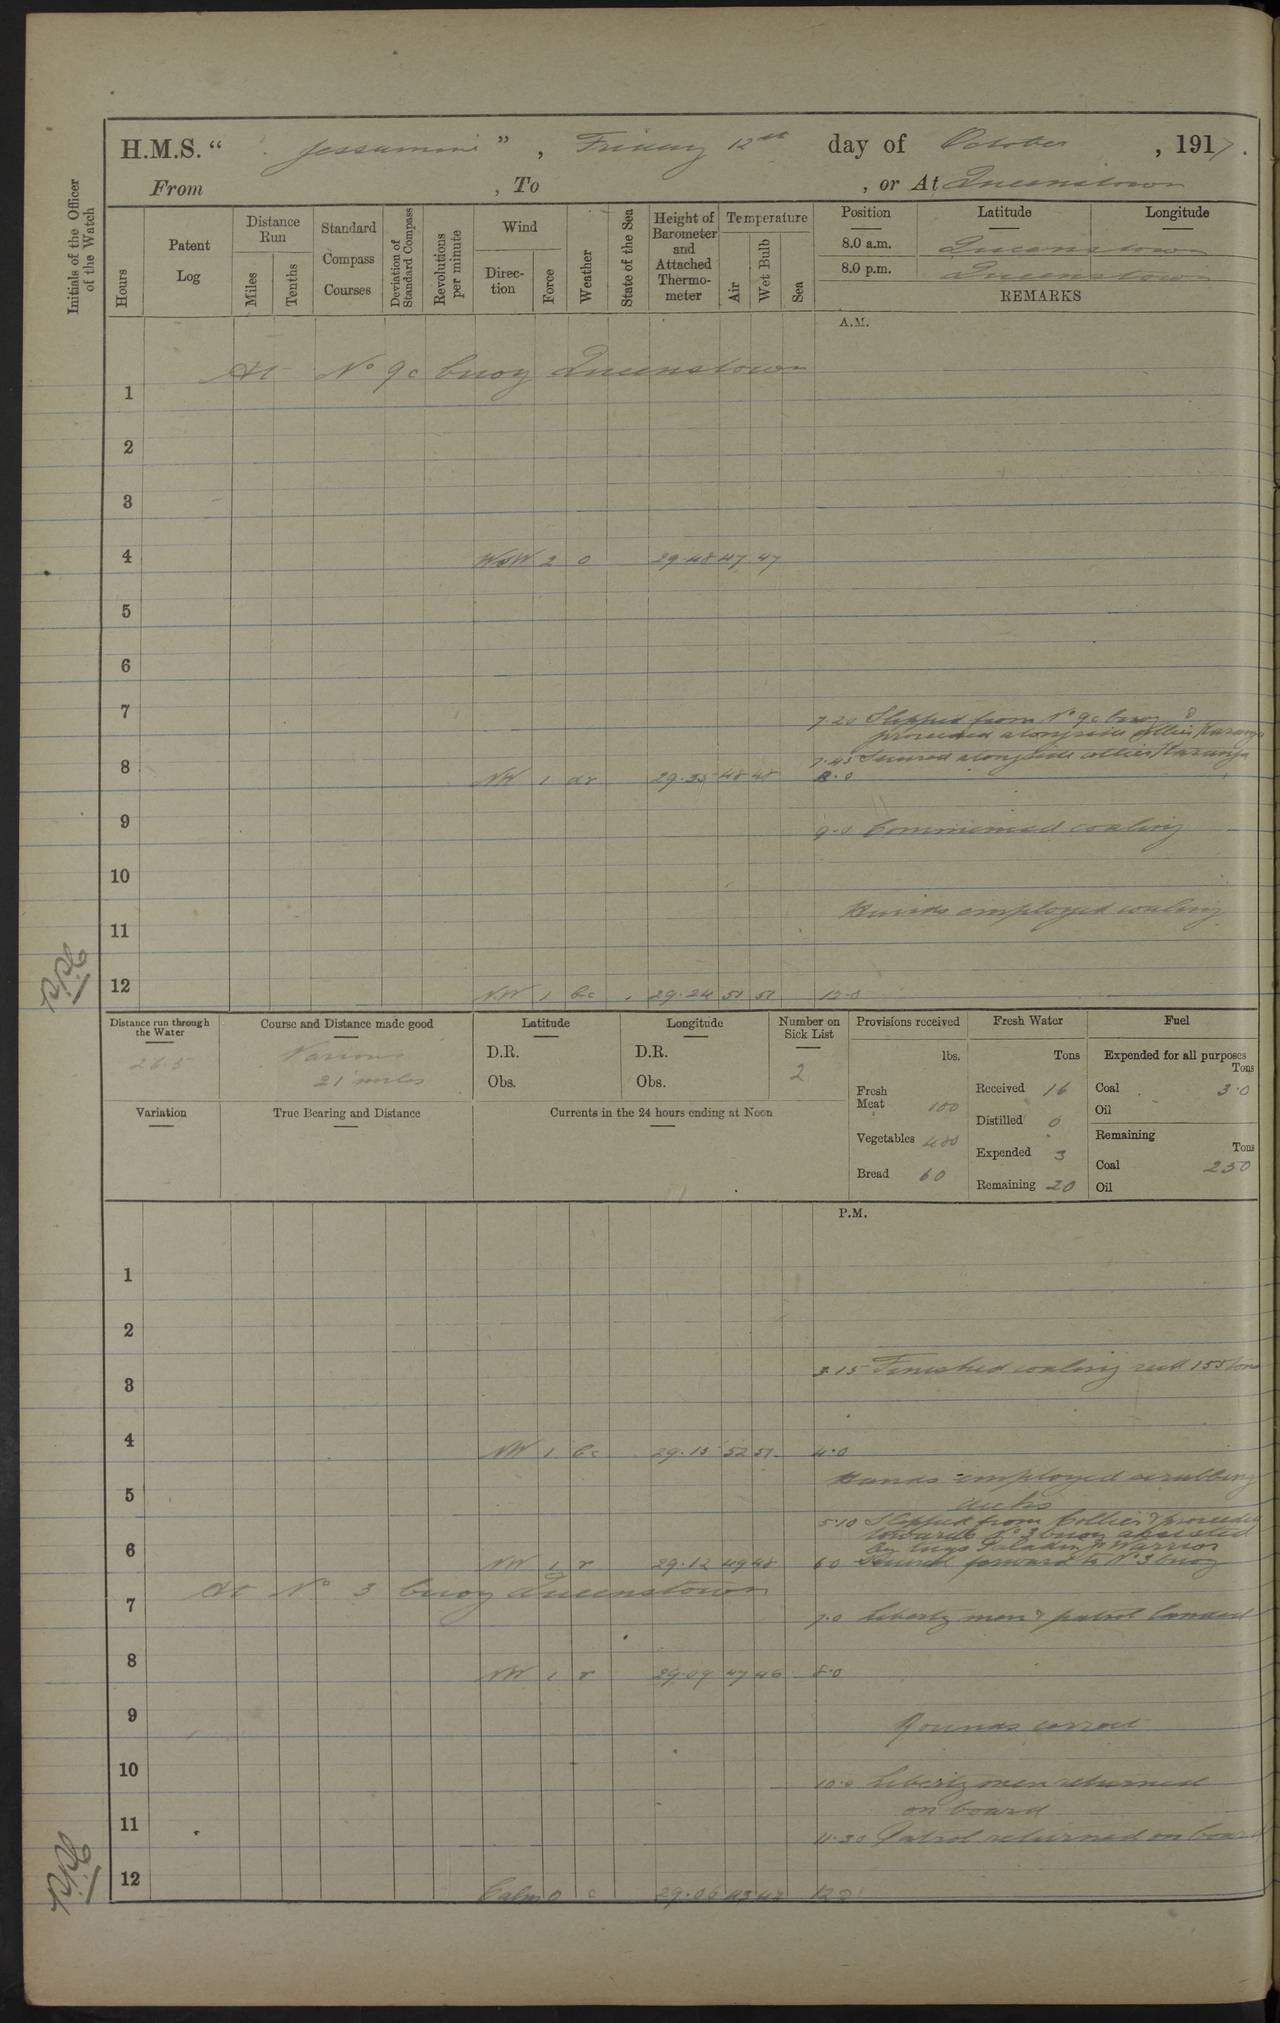 H.M.S. “ Jessamine ” , Friday 12th day of October , 1917.
From , To , or At Queenstown
Initials of the Officer of the Watch
Hours
Patent Log
Distance Run
Miles
Tenths
Standard Compass Courses
Deviation of Standard Compass
Revolutions per minute
Wind
Direc-tion
Force
Weather
State of the Sea
Height of Barometer and Attached Thermo-meter
Temperature
Air
Wet Bulb
Sea
Position Latitude Longitude
8.0 a.m. Queenstown
8.0 p.m. Queenstown
REMARKS
A.M.
At No 9c buoy Queenstown
1
2
3
4 WSW 2 o 29.48 47 47
5
6
7
7.20 Slipped from No 9c buoy &
proceeded alongside collier
7.45 Secured alongside collier
8 NW 1 dr 29.35 48 48 8.0
9 9.0 Commenced coaling
10
Hands employed coaling
11
12 NW 1 bc 29.24 51 51 12.0
Distance run through the Water
26.5
Course and Distance made good
Various
21 miles
Latitude
D.R.
Obs.
Longitude
D.R.
Obs.
Number on Sick List
2
Provisions received
lbs.
Fresh Meat 100
Vegetables 480
Bread 60
Fresh Water
Tons
Received 16
Distilled 0
Expended 3
Remaining 20
Fuel
Expended for all purposes
Tons
Coal 3.0
Oil
Remaining
Tons
Coal 250
Oil
Variation
True Bearing and Distance
Currents in the 24 hours ending at Noon
P.M.
1
2
3.15 Finished coaling recd 155 tons
3
4 NW 1 bc 29.15 52 51 4.0
Hands employed scrubbing
5 decks
5.10 Slipped from Collier & proceeded
towards No 3 buoy assisted
by tugs Paladin & Warrior
6 NW 1 r 29.12 49 48 6.0 Secured forward to No 3 buoy
At No 3 buoy Queenstown
7 7.0 Liberty men & patrol landed
8 NW 1 r 29.09 47 46 8.0
9 Rounds correct
10 10.0 Liberty men returned
on board
11 11.30 Patrol returned on board
12 Calm 0 c 29.06 43 42 12.0